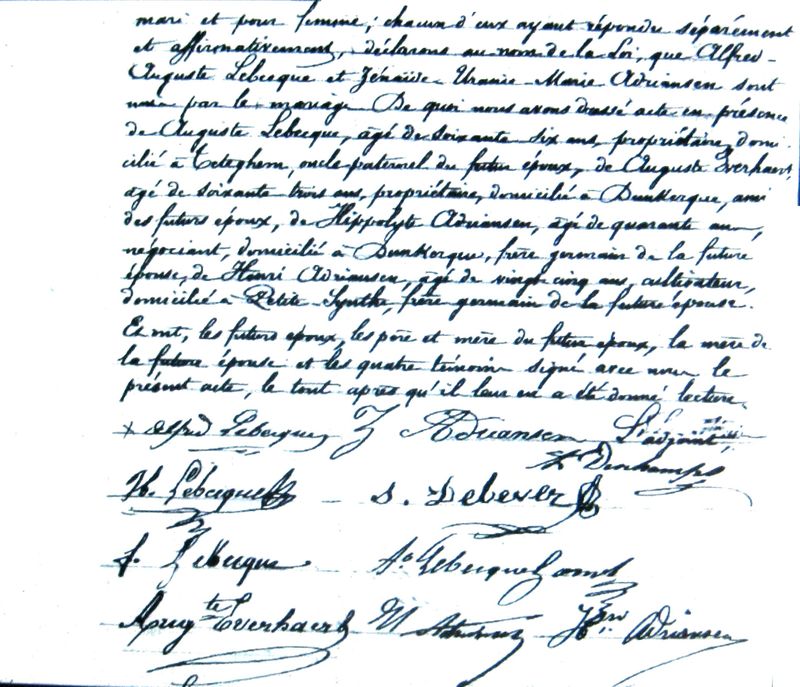 mari et pour femme; chacun d'eux ayant répondu séparément
et affirmativement, déclarons au nom de la Loi, que Alfred-
Auguste Lebecque et Zénaïde-Uranie-Marie Adriansen sont
unis par le mariage De quoi nous avons dressé acte en présence
de Auguste Lebecque, âgé de soixante six ans, propriétaire, domi-
cilié à Teteghem, oncle paternel du futur époux, de Auguste Everhaert,
âgé de soixante trois ans, propriétaire, domicilié à Dunkerque, ami
des futurs époux, de Hippolyte Adriansen, âgé de quarante ans,
négociant, domicilié à Dunkerque, frère germain de la future
épouse, de Henri Adriansen, âgé de vingt cinq ans, cultivateur,
domicilié à Petite-Synthe, frère germain de la future épouse.
Et ont, les futurs époux, les père et mère du futur époux, la mère de
la future épouse et les quatre témoins signé avec nous le
présent acte, le tout après qu'il leur en a été donné lecture.
+ Alfred Lebecque Z Adriansen L'adjoint,
Deschamps
H. Lebecque S. Debever
Lebecque A. Lebecque
Aug.te Everhaert H Adriansen